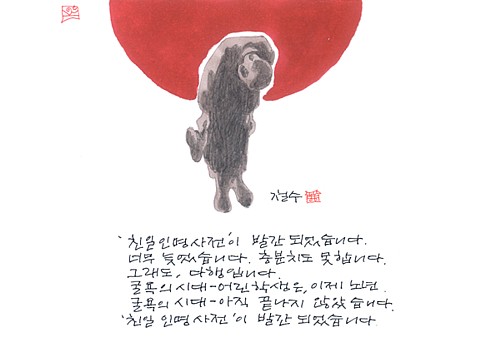 철수
'친일인명사전'이 발간 되었습니다.
너무 늦었습니다. 충분치도 못합니다.
그래도, 다행입니다.
굴욕의 시대-어린학생은, 이제 노년.
굴욕의 시대-아직 끝나지 않았습니다.
'친일 인명사전'이 발간 되었습니다